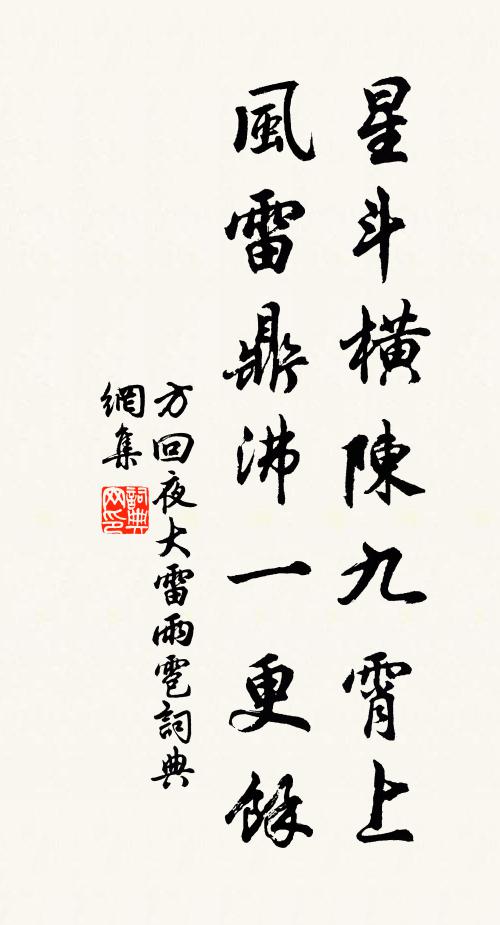 星斗橫陳九霄上
風雷鼎沸一更餘
方回夜大雷雨雹詞典
網集
詞典
网印